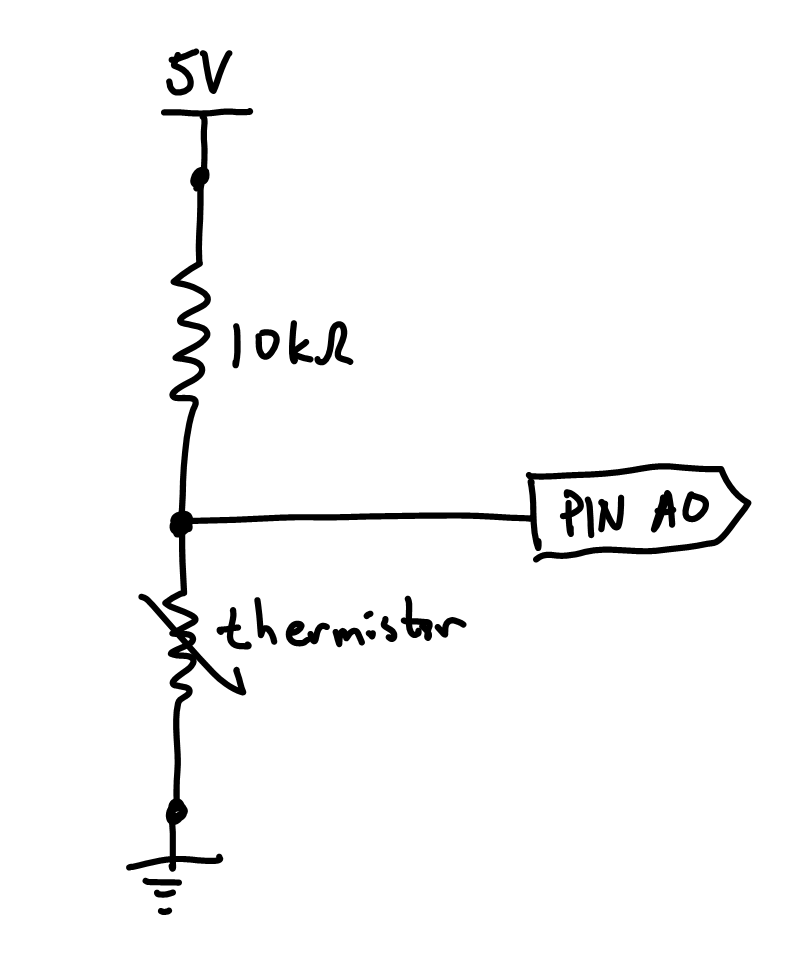 5V
10kΩ
PIN A0
thermistor